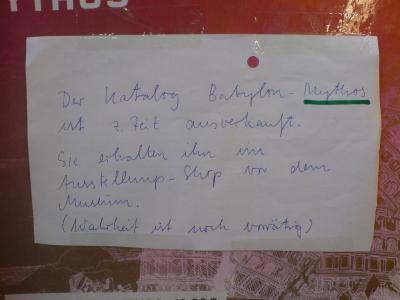 YTHOS
Der Katalog Babylon-Mythos
ist z. Zeit ausverkauft.
Sie erhalten ihn im
Ausstellungs-Shop vor dem
Museum.
(Wahrheit ist noch vorrätig)